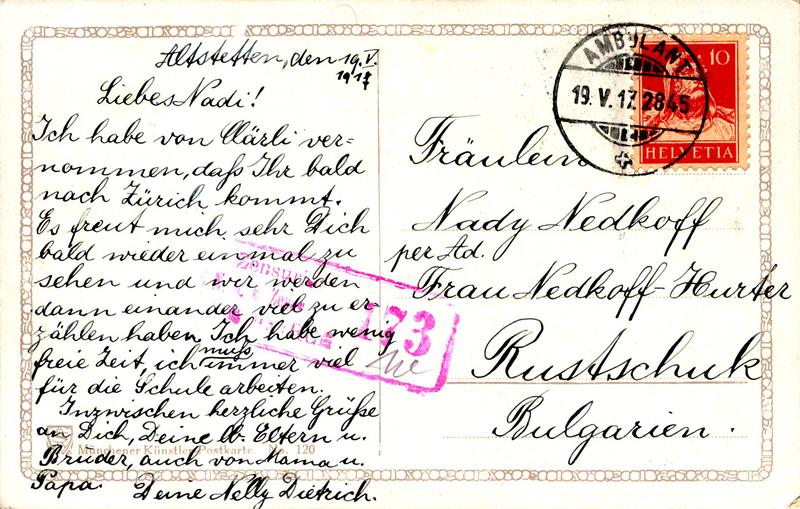 Altstetten, den 19. V.
1917
Liebes Nadi!
Ich habe von Clärli ver=
nommen, daſs Ihr bald
nach Zürich kommt.
Es freut mich sehr Dich
bald wieder einmal zu
sehen und wir werden
dann einander viel zu er=
zählen haben. Ich habe wenig
freie Zeit, ich muss immer viel
für die Schule arbeiten.
Inzwischen herzliche Grüße
an Dich, Deine lb. Eltern u.
Brüder, auch von Mama u.
Papa. Deine Nelly Dietrich.
Münchener Künstler-Postkarte. No. 120
173
AMBULANT
19. V. 17. 2845
10
HELVETIA
Fräulein
Nady Nedkoff
per Ad.
Frau Nedkoff-Hurter
Rustschuk
Bulgarien.